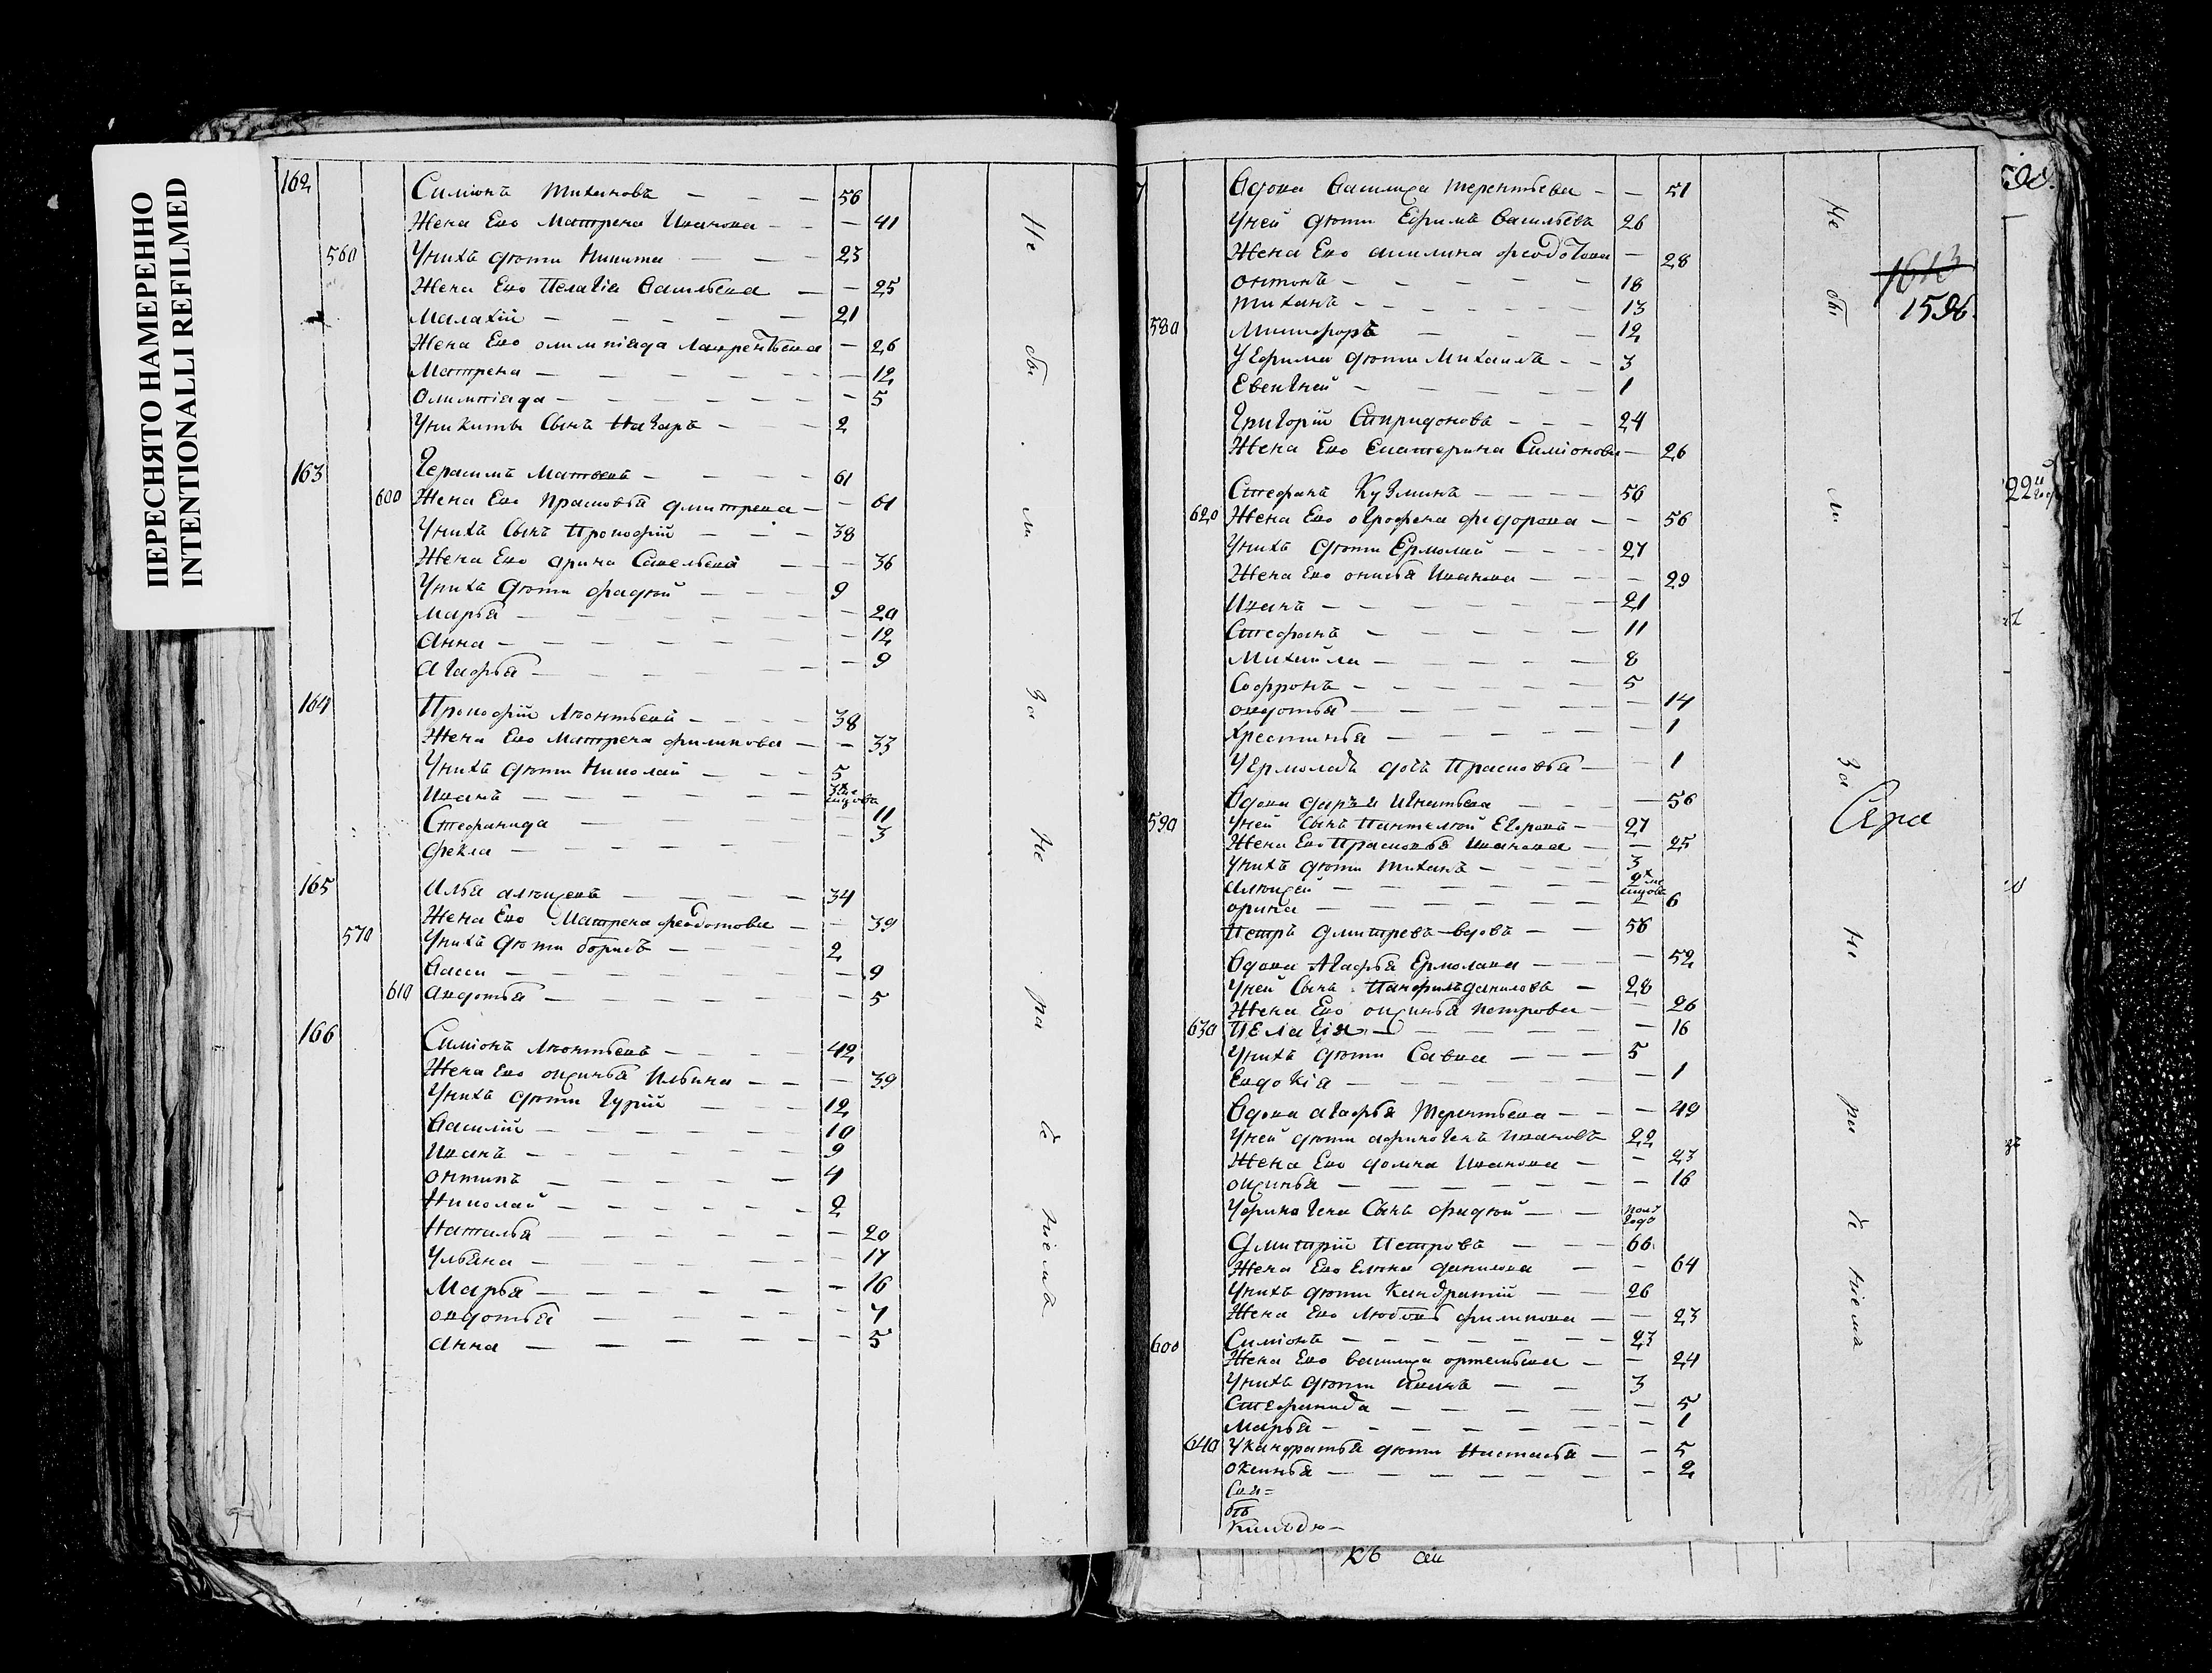 ПЕРЕСНЯТО НАМЕРЕННО
INTENTIONALLI REFILMED
162 Симионъ Тихановъ — — — 56
Жена Ево Матрена Иванова — — — 41
560 Унихъ дѣти Никита — — — 23
Жена Ево Пелагiа Васильева — — 25
Малахiй — — — — — 21
Жена Ево олимпiада Лаврентьева — 26
Матрена — — — — — — 12
Олимпiада — — — — — — 5
Уникиты Сынъ Назаръ — — — 2
163 Герасимъ Матвеевъ — — — — 61
600 Жена Ево Прасковья дмитрева — — 61
Унихъ Сынъ Прокофiй — — — 38
Жена Ево Арина Савельева — — — 36
Унихъ дѣти фадѣй — — — 9
Марья — — — — — — 20
Анна — — — — — — 12
Агафья — — — — — — 9
164 Прокофiй Лѣонтьевъ — — — — 38
Жена Ево Матрена филипова — — 33
Унихъ дѣти Николай — — — 5
Иванъ — — — — — — 3хъ
Стефанида — — — — — 11
фекла — — — — — 3
165 Илья алѣксѣевъ — — — — 34
Жена Ево Матрена феодотова — — 39
570 Унихъ дѣти борисъ — 2
Васса — — — — — — 9
610 авдотья — — — — — — 5
166 Симионъ Лѣонтьевъ — — — — 42
Жена Ево оксинья Ильина — — — 39
Унихъ дѣти Гурiй — — — 12
Василiй — — — — — 10
Иванъ — — — — — — 9
онтипъ — — — — — — 4
Николай — — — — — — 2
Наталья — — — — — — 20
Ульяна — — — — — — 17
Марья — — — — — — 16
овдотья — — — — 7
анна — — — — — 5
Не
бы
ли
за
не
ра
че
нiемъ
Вдова Василиса терентьева — — 51
Уней дѣти Ефримъ Васильевъ 26
Жена Ево акилина феодотова — 28
онтонъ — — — — — 18
тиханъ — — — — — — 13
580 Никифоръ — — — 12
У Ефрима дѣти Михаилъ — — 3
Евенгней — — — — 1
Григорiй Спиридоновъ — — — 24
Жена Ево Екатерина Симiонова — 26
Стефанъ Кузминъ — — — — 56
620 Жена Ево огрофена федорова — — 56
Унихъ дѣти Ермолай — — — 27
Жена Ево онисья Иванова — — — 29
Иванъ — — — — — — 21
Стефанъ — — — — — — 11
Михайла — — — — — — 8
Софронъ — — — — — — 5
овдотья — — — — — — 14
Хрестинья — — — — — 1
У Ермолая дочь Прасковья — — 1
Вдова дарья Игнатьева — — — — 56
590 Уней Сынъ Пантелѣй Егоровъ — 27
Жена Ево Прасковья Иванова — — 25
Унихъ дѣти Тиханъ — — — — 3
Алѣксей — — — — — —
орина — — — — — — 6
Петръ Дмитревъ вдовъ — — 58
Вдова Агафья Ермолаева — — — — 52
Уней Сынъ Панфилъ даниловъ — 28
Жена Ево оксинья петрова — — 26
630 Пелагiя — — — — — 16
Унихъ дѣти Савва — — — 5
Евдокiя — — — — — — 1
Вдова агафья Терентьева — — — 49
Уней дѣти афиногенъ Ивановъ 22
Жена Ево домна Иванова — — 23
оксинья — — — — — — 16
Уфиногена Сынъ фадѣй — — пол года
Дмитрiй Петровъ — — — 66
Жена Ево Елена данилова — — 64
Унихъ дѣти Кандратiй — — — 26
Жена Ево Любовь филипова — — 23
600 Симiонъ — — — — — — 23
Жена Ево василиса ортемьева — — 24
Унихъ дѣти Иванъ — — 3
Стефанида — — — — — 5
Марья — — — — — — 1
640 Укандратья дѣти Настасья — — 5
оксинья — — — — — — 2
Не
бы
ли
за
не
ра
че
нiемъ
1613
1596
Сера
къ сей